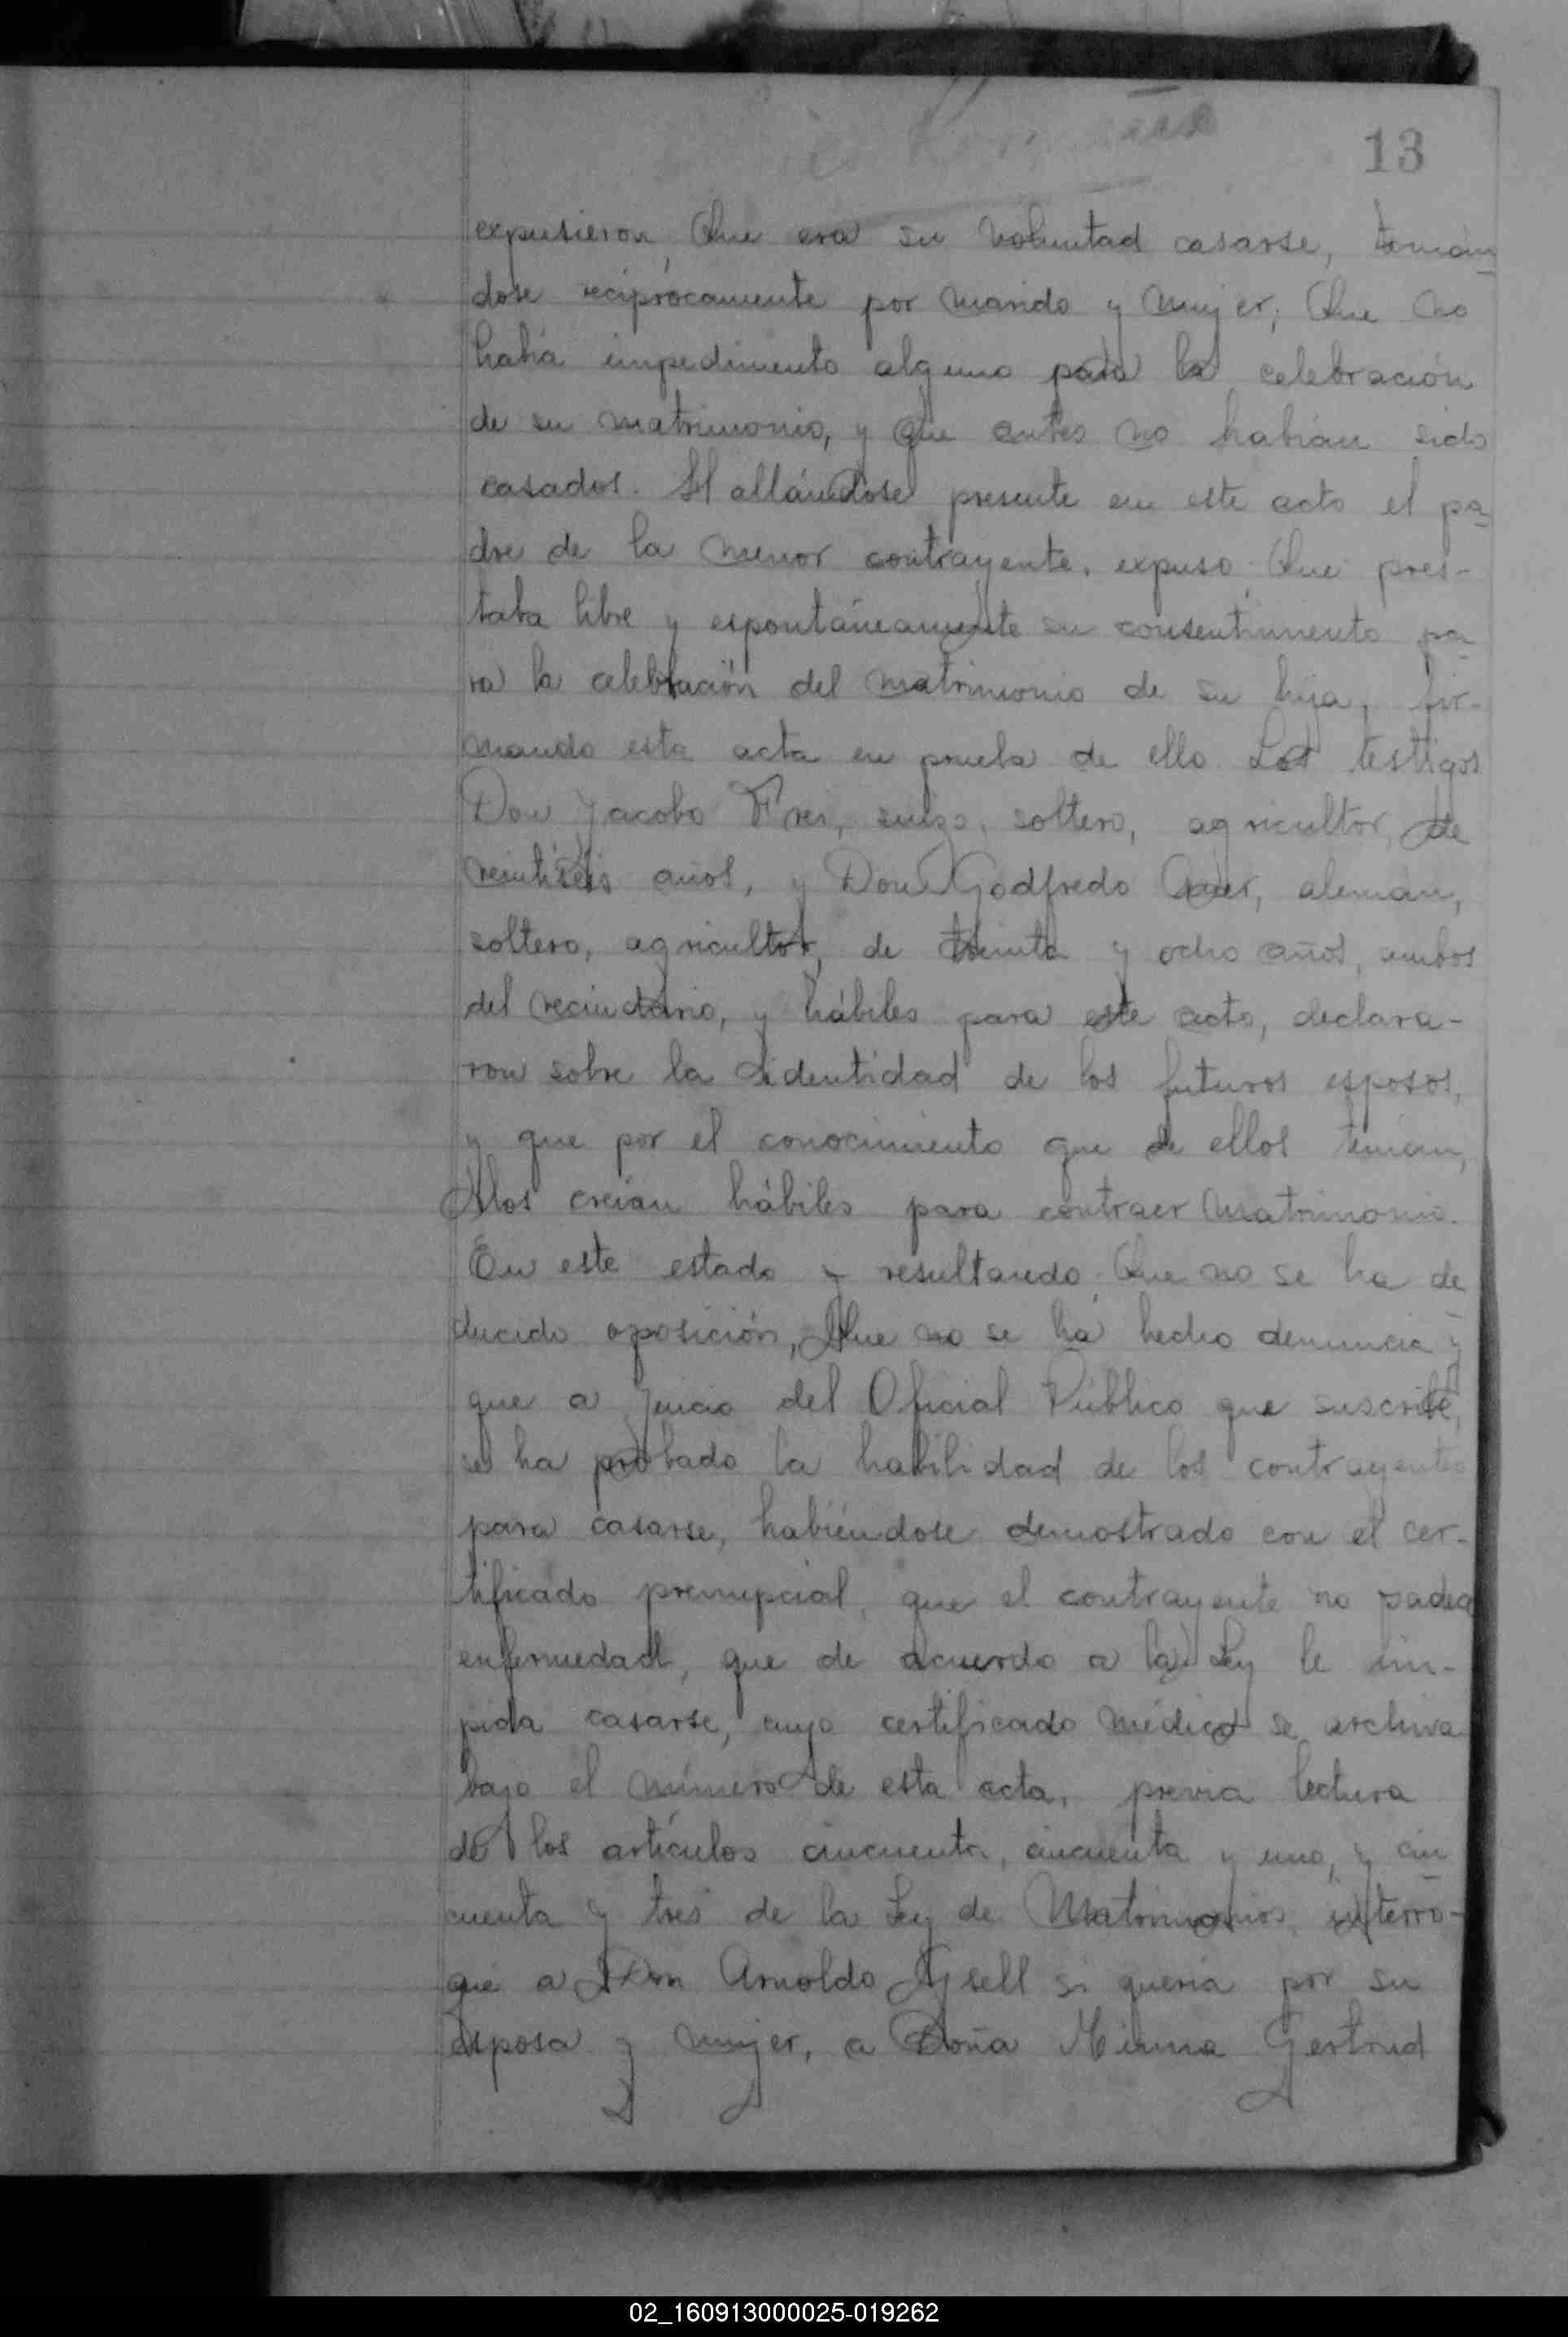 13
expusieron, Que era su voluntad casarse, toman
dose recíprocamente por marido y mujer; Que no
había impedimento alguno para la celebración
de su matrimonio, y que antes no habían sido
casados. Hallándose presente en este acto el pa
dre de la menor contrayente, expuso: Que pres-
taba libre y espontáneamente su consentimiento pa
ra la celebración del matrimonio de su hija, fir-
mando esta acta en prueba de ello. Los testigos
Don Jacobo Frei, suizo, soltero, agricultor, de
veintiséis años, y Don Godfredo alemán,
soltero, agricultor, de treinta y ocho años, ambos
del vecindario, y hábiles para este acto, declara-
ron sobre la identidad de los futuros esposos,
y que por el conocimiento que de ellos tenían,
los creían hábiles para contraer matrimonio.
En este estado y resultando: Que no se ha de
ducido oposición, Que no se ha hecho denuncia y
que a juicio del Oficial Público que suscribe,
se ha probado la habilidad de los contrayentes
para casarse, habiéndose demostrado con el cer-
tificado prenupcial, que el contrayente no padece
enfermedad, que de acuerdo a la Ley le im-
pida casarse, cuyo certificado médico se archiva
bajo el número de esta acta, previa lectura
de los artículos cincuenta, cincuenta y uno, y cin
cuenta y tres de la Ley de Matrimonios, interro-
gué a Don Arnoldo Gsell si quería por su
esposa y mujer, a Doña Minna Gertrud
02_160913000025-019262